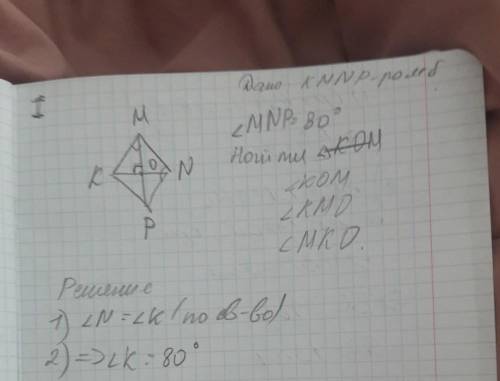 I
Дано KMNP-ромб
∠MNP=80°
Найти ∠KOM
∠KOM
∠KMO
∠MKO.
M
K O N
P
Решение
1) ∠N=∠K (по св-во)
2) => ∠K=80°